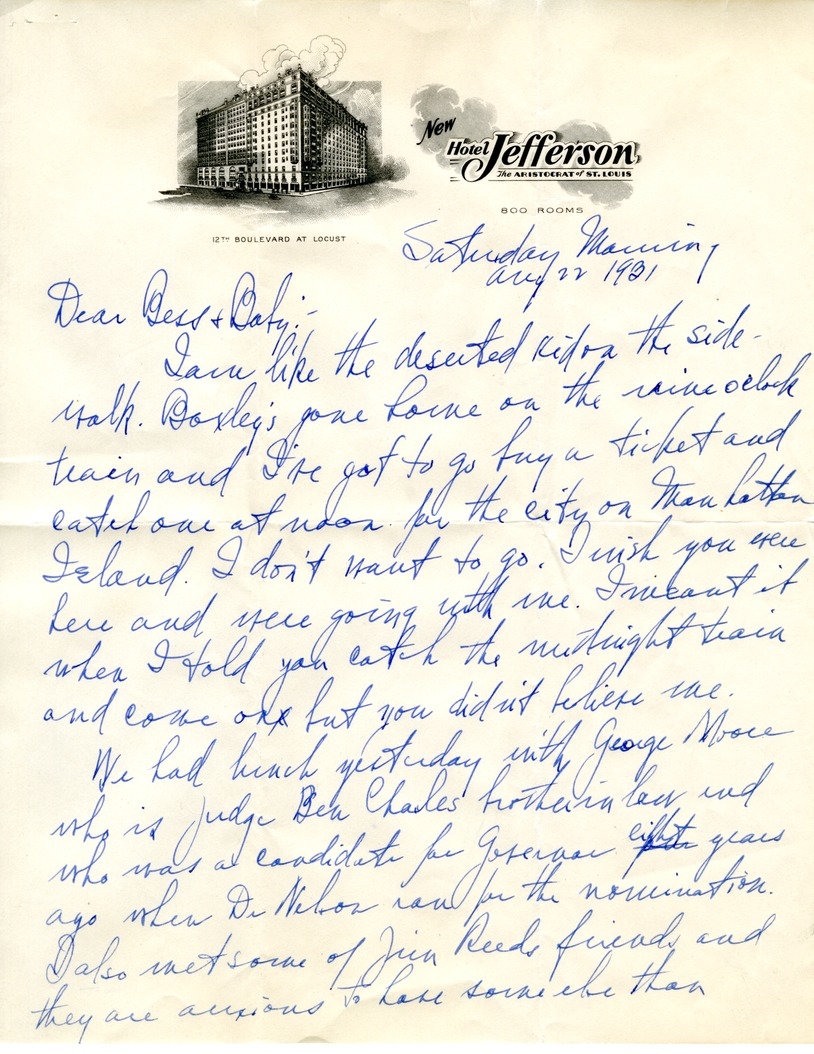 New
Hotel Jefferson
The ARISTOCRAT of ST. LOUIS
800 ROOMS
12TH BOULEVARD AT LOCUST
Saturday Morning
Aug 22 1931
Dear Bess & Baby:-
I am like the deserted kid on the side-
walk. Boxley's gone home on the nine oclock
train and I've got to go buy a ticket and
catch one at noon for the city on Manhattan
Island. I don't want to go. I wish you were
here and were going with me. I meant it
when I told you catch the midnight train
and come on but you didn't believe me.
We had lunch yesterday with George Moore
who is Judge Ben Charles' brother in law and
who was a candidate for Governor eight years
ago when Dr Nelson ran for the nomination.
I also met some of Jim Reeds friends and
they are anxious to have some else than